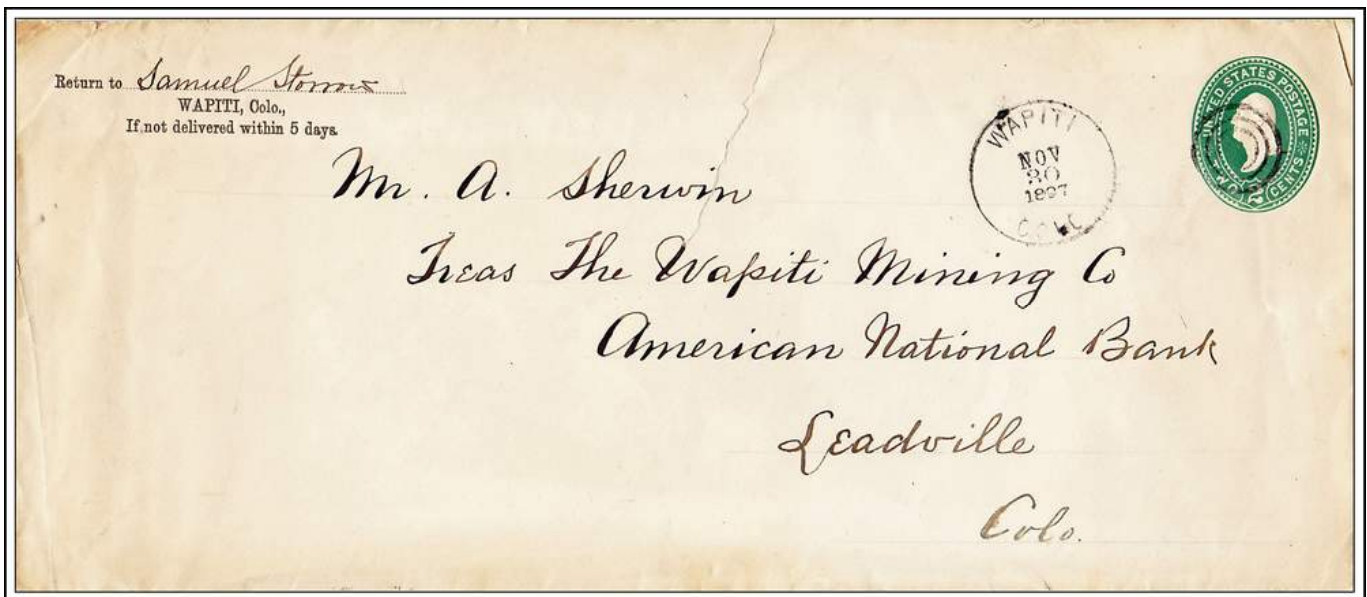 Return to Samuel Storrow
WAPITI, Colo.,
If not delivered within 5 days.
WAPITI
NOV
20
1897
COLO
UNITED STATES POSTAGE
TWO 2 CENTS
Mr. A. Sherwin
Treas The Wapiti Mining Co
American National Bank
Leadville
Colo.